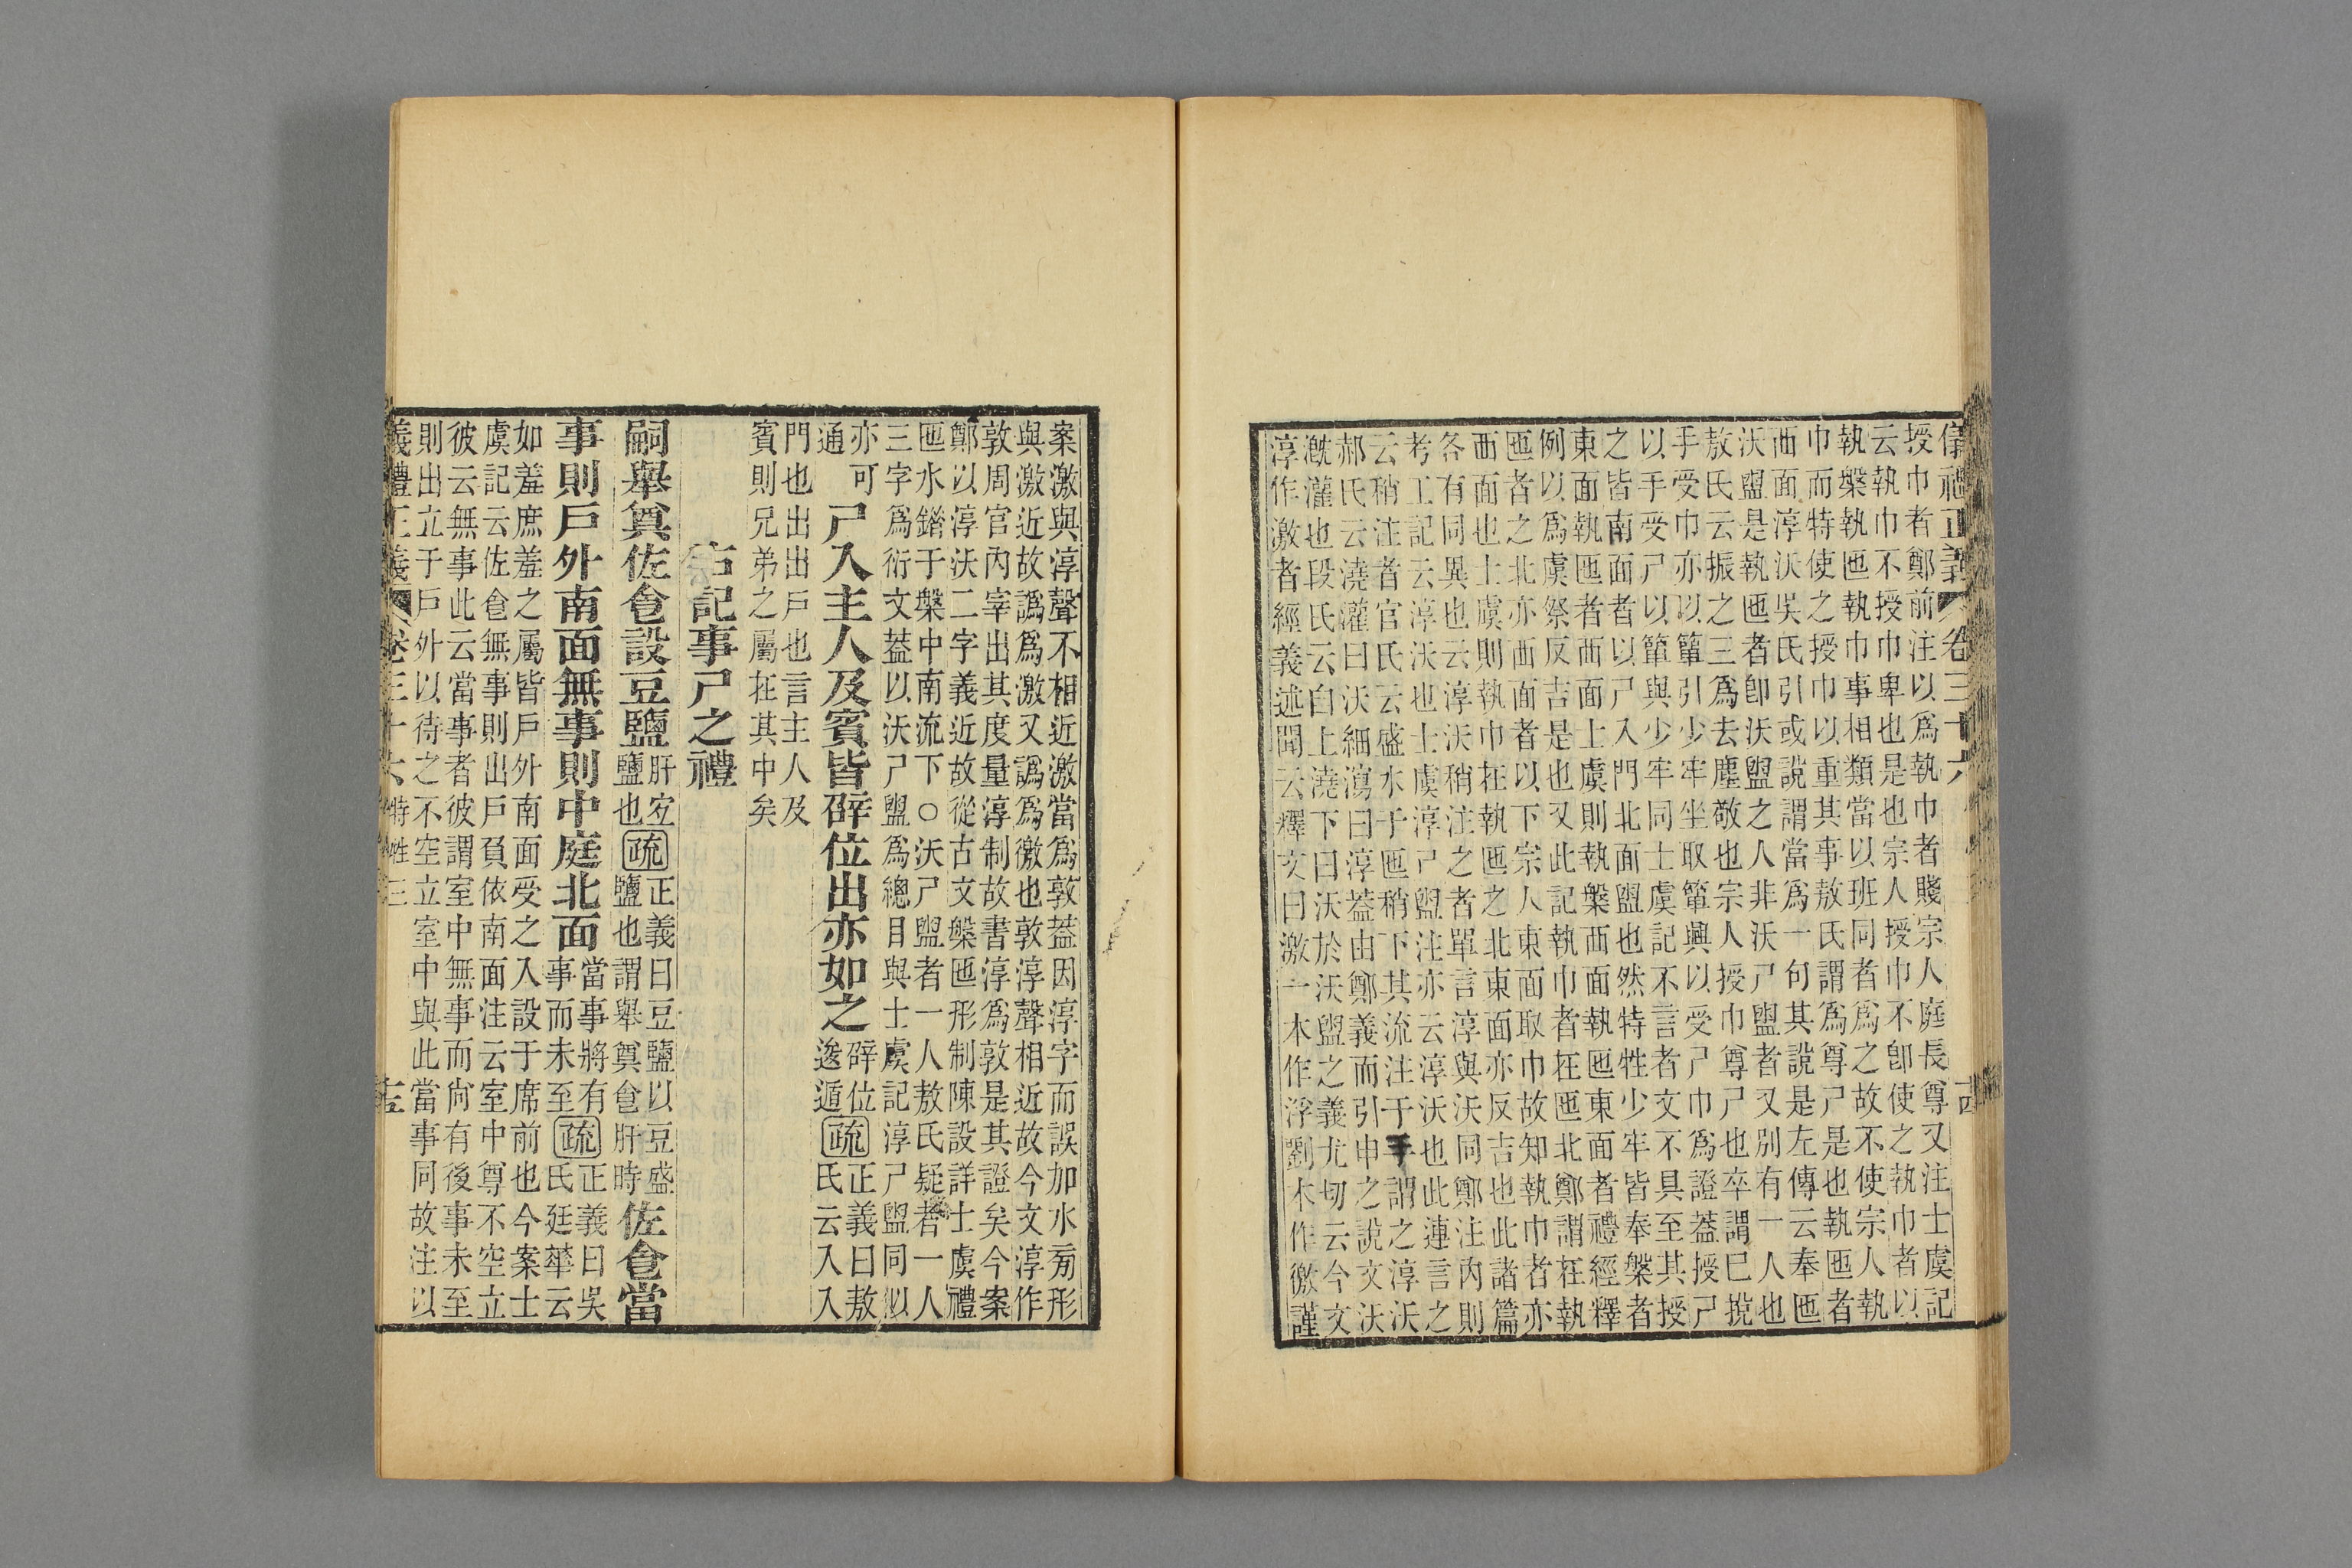 儀禮正義 卷三十六 十四
授巾者鄭前注以爲執巾者賤宗人庭長尊又注士虞記
云執巾不授巾卑也是也宗人授巾不卽使之執巾者以
執槃執匜執巾事相類當以班同者爲之故不使宗人執
巾而特使之授巾以重其事敖氏謂爲尊尸是也執匜者
西面淳沃吳氏引或說謂當爲一句其說是左傳云奉匜
沃盥是執匜者卽沃盥之人非沃尸盥者又別有一人也
敖氏云振之三爲去塵敬也宗人授巾尊尸也卒謂巳挩
手受巾亦以簞引少牢坐取簞興以受尸巾爲證蓋授尸
以手受尸以簞與少牢同士虞記不言者文不具至其授
之皆南面者以尸入門北面盥也然特牲少牢皆奉槃者
東面執匜者西面士虞則執槃西面執匜東面者禮經釋
例以爲虞祭反吉是也又此記執巾者在匜北鄭謂在執
匜者之北亦西面者以下宗人東面取巾故知執巾者亦
西面也士虞則執巾在執匜之北東面亦反吉也此諸篇
各有同異也云淳沃稍注之者單言淳與沃同鄭注內則
考工記云淳沃也士虞淳尸盥注亦云淳沃也此連言之
云稍注者官氏云盛水于匜稍下其流注于手謂之淳沃
郝氏云澆灌曰沃細瀉曰淳蓋由鄭義而引申之說文沃
漑灌也段氏云自上澆下曰沃於沃盥之義尤切云今文
淳作激者經義述聞云釋文曰激一本作浮劉木作徼謹
案激與淳聲不相近激當爲敦蓋因淳字而誤加水旁形
與激近故譌爲激又譌爲徼也敦淳聲相近故今文淳作
敦周官內宰出其度量淳制故書淳爲敦是其證矣今案
鄭以淳沃二字義近故從古文槃匜形制陳設詳士虞禮
匜水錯于槃中南流下○沃尸盥者一人敖氏疑者一人
三字爲衍文蓋以沃尸盥爲總目與士虞記淳尸盥同似
亦可
通
尸入主人及賓皆辟位出亦如之
辟位
逡遁
疏
正義曰敖
氏云入入
門也出出戶也言主人及
賓則兄弟之屬在其中矣
右記事尸之禮
嗣舉奠佐食設豆鹽
肝宜
鹽也
疏
正義曰豆鹽以豆盛
鹽也謂舉奠食肝時
佐食當
事則戶外南面無事則中庭北面
當事將有
事而未至
疏
正義曰吳
氏廷華云
如羞庶羞之屬皆戶外南面受之入設于席前也今案士
虞記云佐食無事則出戶負依南面注云室中尊不空立
彼云無事此云當事者彼謂室中無事而尚有後事未至
則出立于戶外以待之不空立室中與此當事同故注以
義禮正義 卷三十六 特牲三 十五